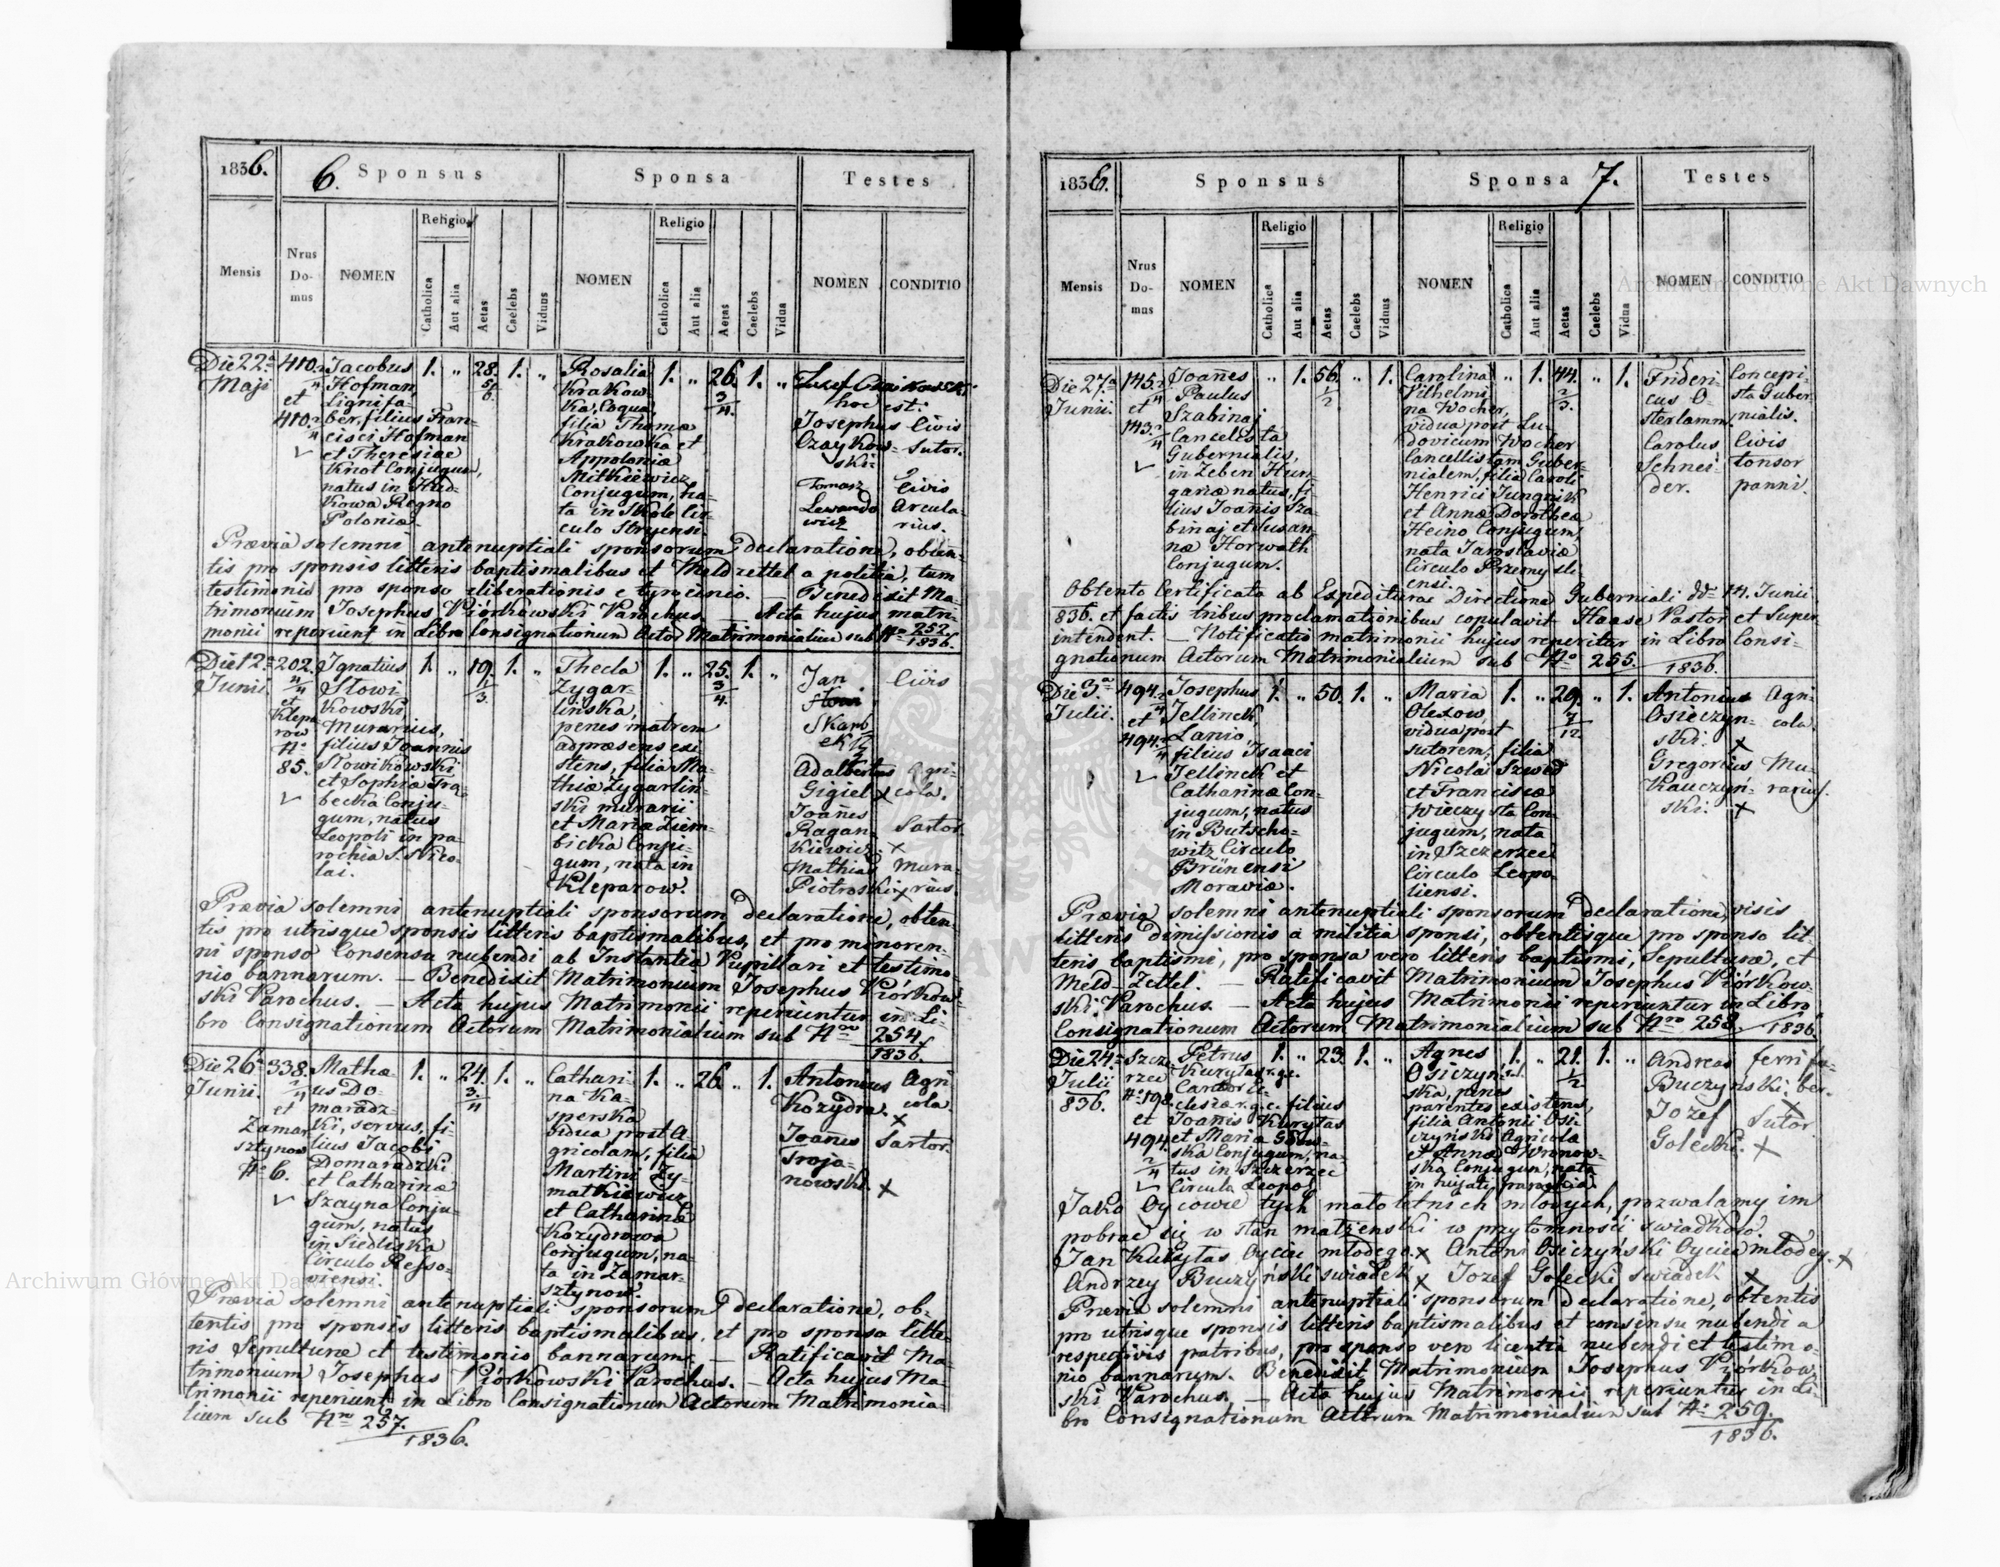 1836.
6.
Sponsus
Sponsa
Testes
Mensis
Nrus Do- mus
NOMEN
Religio
Catholica
Aut alia
Aetas
Caelebs
Viduus
NOMEN
Religio
Catholica
Aut alia
Aetas
Caelebs
Vidua
NOMEN
CONDITIO
Die 22a
Maji
410 2/4
et
410 2/4
Jacobus
Hofman,
lignifa-
ber, filius Fran-
cisci Hofman
et Theresiae
Knot Conjugum,
natus in
Regno
Poloniae.
1. „ 28. 5/6 1. „
Rosalia
Krakow-
ka, Coqua,
filia Thomae
Krakowka et
Appoloniae
Mitkiewicz
Conjugum, na-
ta in Skole Cir-
culo Stryensi.
1. „ 26. 3/4. 1. „
hoc est:
Josephus Civis
Czaykow- Sutor.
ski
Tomasz Civis
Lewando Arcula-
wicz rius.
Praevia solemni antenuptiali sponsorum declaratione, obten-
tis pro sponsis litteris baptismalibus et Meldzettel a politia, tum
testimonio pro sponso liberationis e tyrocinio. — Benedixit Ma-
trimonium Josephus Piórkowski Parochus. — Acta hujus matri-
monii reperiunt in Libro Consignationum Actor Matrimonialium sub No 252/1836.
Die 12a
Junii.
202.
4/4
et
Klepa
row
No
85.
Ignatius
Słowi-
kowski
Murarius,
filius Joannis
Słowikowski
et Sophiae Tra-
becka Conju-
gum, natus
Leopoli in pa-
rochia S. Nico-
lai.
1. „ 19. 1/3. 1. „
Thecla
Zygar-
lińska,
penes matrem
adpraesens exi-
stens, filia Ma-
thiae Zygarlin-
ski murarii
et Mariae Ziem-
bicka Conju-
gum, nata in
Kleparow.
1. „ 25. 3/4. 1. „
Jan Civis
Skarb
ek
Adalbertus Agri-
Gigiel x cola.
Joanes
Ragan- Sartor
kiewicz x
Mathias Mura-
Piotroski x rius.
Praevia solemni antenuptiali sponsorum declaratione, obten-
tis pro utrisque sponsis litteris baptismalibus, et pro minoren-
ni sponso Consensu nubendi ab Instantia Pupillari et testimo-
nio bannarum. — Benedixit Matrimonium Josephus Piórkow-
ski Parochus. — Acta hujus Matrimonii reperiuntur in Li-
bro Consignationum Actorum Matrimonialium sub Nro 254/1836.
Die 26a
Junii.
338.
2/4
et
Zamar
sztynow
No 6.
Mathae-
us Do-
maradz-
ki, servus, fi-
lius Jacobi
Domaradzki
et Catharinae
Szayna Conju-
gum, natus
in Siedliska
Circulo Reszo-
viensi.
1. „ 24. 3/4 1. „
Cathari-
na Ka-
sperska
vidua post A-
gricolam, filia
Martini Zy-
matkiewicz
et Catharinae
Kozydrowa
Conjugum, na-
ta in Zamar-
sztynow.
1. „ 26. „ 1.
Antonius Agri-
Kozydra. cola
x
Joanes Sartor
Troja-
nowski. x
Praevia solemni antenuptiali sponsorum declaratione, ob-
tentis pro sponsis litteris baptismalibus, et pro sponsa litte-
ris Sepulturae et testimonio bannarum. — Ratificavit Ma-
trimonium Josephus Piórkowski Parochus. — Acta hujus Ma-
trimonii reperiunt in Libro Consignationum Actorum Matrimonia-
lium sub Nro 257./1836.
1836.
Sponsus
Sponsa
7.
Testes
Mensis
Nrus Do- mus
NOMEN
Religio
Catholica
Aut alia
Aetas
Caelebs
Viduus
NOMEN
Religio
Catholica
Aut alia
Aetas
Caelebs
Vidua
NOMEN
CONDITIO
Die 27a
Junii.
145 2/4
et
143 2/4
Joanes
Paulus
Szabinaj
Cancelista
Gubernialis,
in Zeben Hun-
gariae natus, fi-
lius Joanis Sza-
binaj et Susan-
nae Horwath
Conjugum.
„ 1. 56. 1/2 „ 1.
Carolina
Vilhelmi-
na Wocher,
vidua post Lu-
dovicum Wocher
Cancellistam Guber-
nialem, filia Caroli
Henrici Jungnik
et Annae Dorotheae
Heino Conjugum,
nata Jaroslaviae
Circulo Przemysli-
ensi.
„ 1. 44. 2/3. „ 1.
Frideri- Concepi-
cus O- sta Guber-
sterlamm. nialis.
Carolus Civis
Schnei- tonsor
der. panni.
Obtento Certificato ab Expediturae Directione Guberniali dd 14. Junii
836. et factis tribus proclamationibus copulavit Haase Pastor et Super-
intendent. — Notificatio matrimonii hujus reperitur in Libro Consi-
gnationum Actorum Matrimonialium sub No 255./1836.
Die 3a
Julii.
494 2/4
et
494 2/4
Josephus
Jellinek,
Lanio,
filius Isaaci
Jellinek et
Catharinae Con-
jugum, natus
in Butscho-
witz Circulo
Brünensi
Moraviae.
1. „ 50. 1. „
Maria
Olexow,
vidua post
sutorem, filia
Nicolai Szwed
et Franciscae
Wieczysta Con-
jugum, nata
in Szczerzec
Circulo Leopo-
liensi.
1. „ 29. 7/12 „ 1.
Antonius Agri-
Osieczyn- cola.
ski. x
Gregorius Mu-
Kauczyń- rarius.
ski. x
Praevia solemni antenuptiali sponsorum declaratione, visis
litteris dimissionis a militia sponsi, obtentisque pro sponso lit-
teris baptismi, pro sponsa vero litteris baptismi, Sepulturae, et
Meld-Zettel. — Ratificavit Matrimonium Josephus Piórkow-
ski Parochus. — Acta hujus Matrimonii reperiuntur in Libro
Consignationum Actorum Matrimonialium sub Nro 258./1836.
Die 24a
Julii
836.
Szcze
rzec
No 198.
et
494.
2/4
Petrus
Kurytas r.g.c.
Cantor Ec-
clesiae r.g.c. filius
Joanis Kurytas
et Maria
ska Conjugum, na-
tus in Szczerzec
Circulo Leopol
1. „ 23. 1. „
Agnes
Osiczyn-
ska, penes
parentes existens,
filia Antonii Osi-
czyński Agricolae
et Annae Wronow-
ska Conjugum, nata
in hujati parochia.
1. „ 21. 1/2 1. „
Andreas ferri fa-
Buczynski. ber.
x
Jozef Sutor
Golecki. x
Jako Oycowie tych małoletnich młodych, pozwalamy im
pobrać się w stan małżenski w przytomności swiadków.
Jan Kurytas Oyciec młodego x Antoni Osiczyński Oyciec młodey. x
Andrzey Buczyński swiadek x Jozef Golecki swiadek x
Praevia solemni antenuptiali sponsorum declaratione, obtentis
pro utrisque sponsis litteris baptismalibus et consensu nubendi a
respectivis patribus, pro sponso vero licentia nubendi et testimo-
nio bannarum. Benedixit Matrimonium Josephus Piórkow-
ski Parochus. — Acta hujus Matrimonii reperiuntur in Li-
bro Consignationum Actorum Matrimonialium sub No 259./1836.
Archiwum Główne Akt Dawnych
Archiwum Główne Akt Dawnych